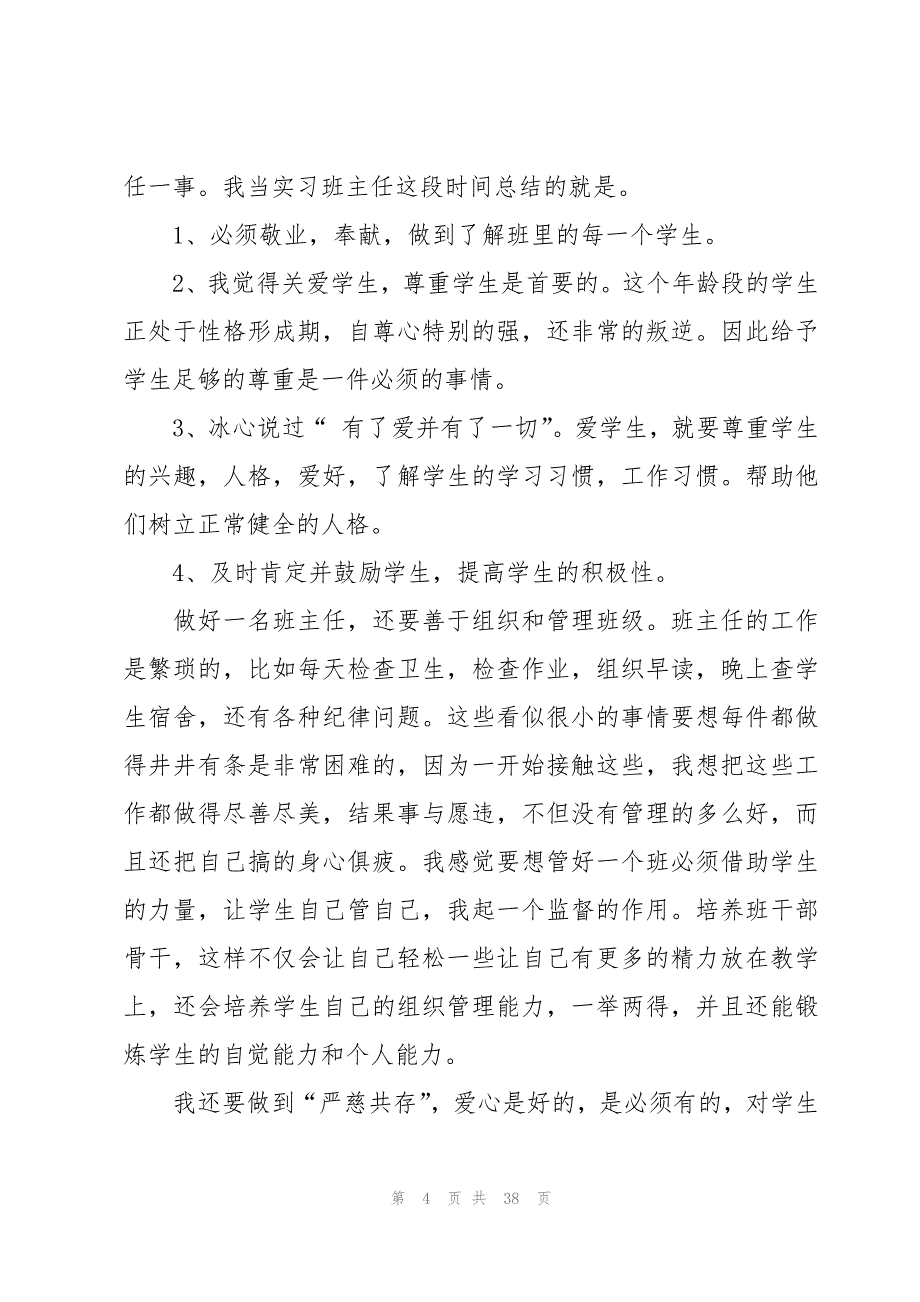 任一事。我当实习班主任这段时间总结的就是。
1、必须敬业，奉献，做到了解班里的每一个学生。
2、我觉得关爱学生，尊重学生是首要的。这个年龄段的学生
正处于性格形成期，自尊心特别的强，还非常的叛逆。因此给予
学生足够的尊重是一件必须的事情。
3、冰心说过“ 有了爱并有了一切”。爱学生，就要尊重学生
的兴趣，人格，爱好，了解学生的学习习惯，工作习惯。帮助他
们树立正常健全的人格。
4、及时肯定并鼓励学生，提高学生的积极性。
做好一名班主任，还要善于组织和管理班级。班主任的工作
是繁琐的，比如每天检查卫生，检查作业，组织早读，晚上查学
生宿舍，还有各种纪律问题。这些看似很小的事情要想每件都做
得井井有条是非常困难的，因为一开始接触这些，我想把这些工
作都做得尽善尽美，结果事与愿违，不但没有管理的多么好，而
且还把自己搞的身心俱疲。我感觉要想管好一个班必须借助学生
的力量，让学生自己管自己，我起一个监督的作用。培养班干部
骨干，这样不仅会让自己轻松一些让自己有更多的精力放在教学
上，还会培养学生自己的组织管理能力，一举两得，并且还能锻
炼学生的自觉能力和个人能力。
我还要做到“严慈共存”，爱心是好的，是必须有的，对学生
第 4 页 共 38 页